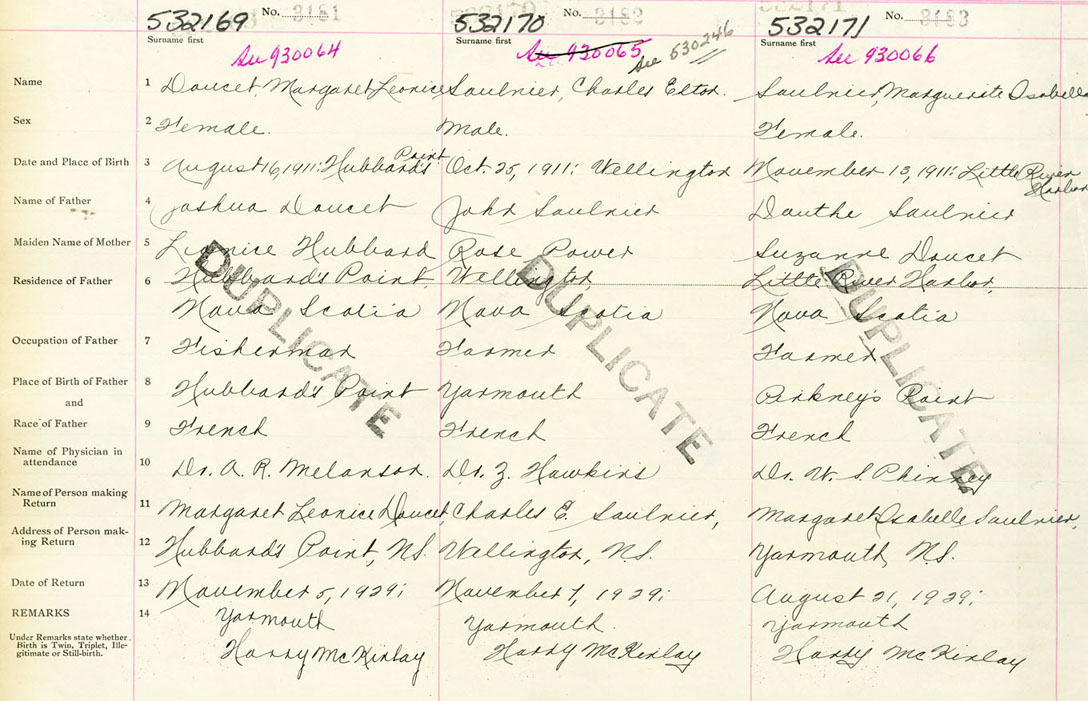 532169 No. 3181 532170 No. 3182 532171 No. 3183
Surname first Surname first Surname first
See 930064 See 930065 See 530246 See 930066
Name 1 Doucet, Margaret Leonice Saulnier, Charles Elton. Saulnier, Marguerite Isabelle
Sex 2 Female. Male. Female.
Date and Place of Birth 3 August 16, 1911: Hubbard's Point Oct. 25, 1911: Wellington November 13, 1911: Little River Harbor
Name of Father 4 Joshua Doucet John Saulnier Dauthe Saulnier
Maiden Name of Mother 5 Leonice Hubbard Rose Power Suzanne Doucet
Residence of Father 6 Hubbard's Point, Wellington, Little River Harbor,
Nova Scotia Nova Scotia Nova Scotia
Occupation of Father 7 Fisherman Farmer Farmer
Place of Birth of Father 8 Hubbard's Point Yarmouth Pinkney's Point
and
Race of Father 9 French French French
Name of Physician in
attendance 10 Dr. A. R. Melanson. Dr. Z. Hawkins Dr. W. S. Phinney
Name of Person making
Return 11 Margaret Leonice Doucet, Charles E. Saulnier, Margaret Isabelle Saulnier,
Address of Person mak-
ing Return 12 Hubbard's Point, N.S. Wellington, N.S. Yarmouth, N.S.
Date of Return 13 November 5, 1929; November 7, 1929; August 21, 1929;
REMARKS 14 Yarmouth Yarmouth. Yarmouth
Under Remarks state whether
Birth is Twin, Triplet, Ille-
gitimate or Still-birth.
Harry McKinlay Harry McKinlay Harry McKinlay
DUPLICATE DUPLICATE DUPLICATE